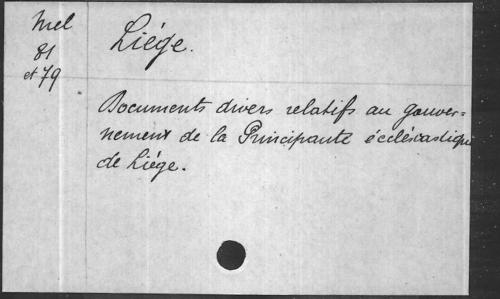 Mel
81
et 79
Liége.
Documents divers relatifs au gouver=
nement de la Principauté écclésiastique
de Liége.